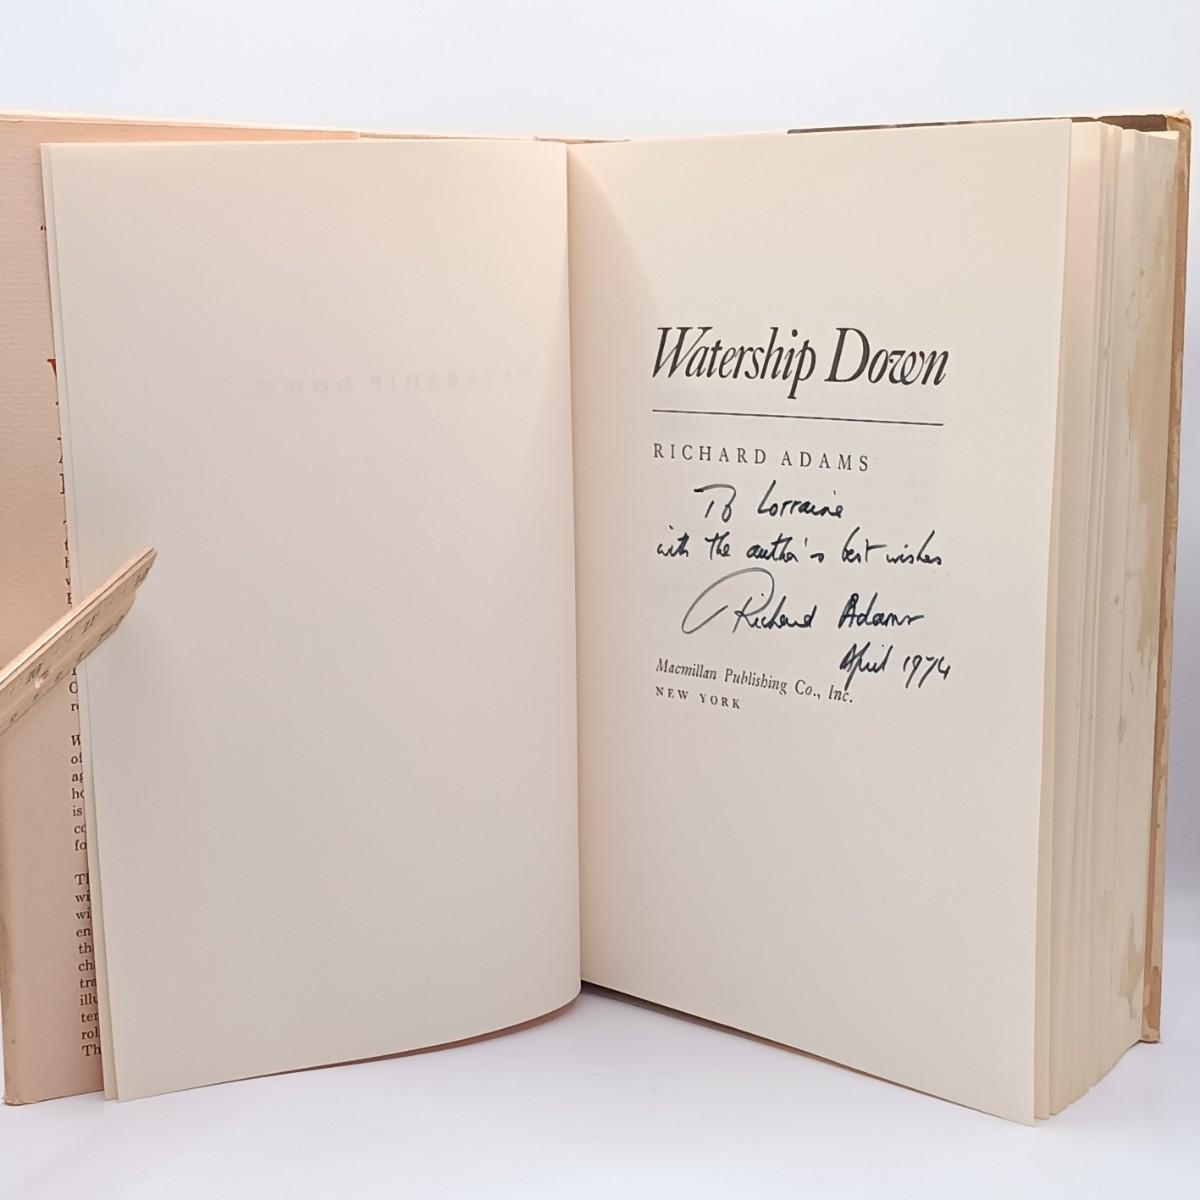 WATERSHIP DOWN
Watership Down
RICHARD ADAMS
To Lorraine
with the author's best wishes
Richard Adams
April 1974
Macmillan Publishing Co., Inc.
NEW YORK